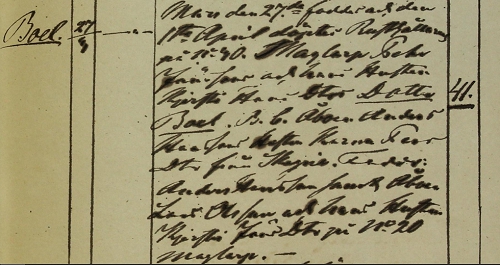 Boel. 27/3 Mars den 27de föddes och den
1ste April döptes Rusthållaren
på No 90. Maglarp Pehr
Jönsson och hans Hustru
Kjersti Hans Dtr Dotter 41.
Boel. B. b. Åboen Anders
Hansons Hustru Karna Pers
Dtr från
Anders Hansson samt Åboen
Lars Olsson och hans Hustru
Kjersti Jöns Dtr på No 20
Maglarp. —